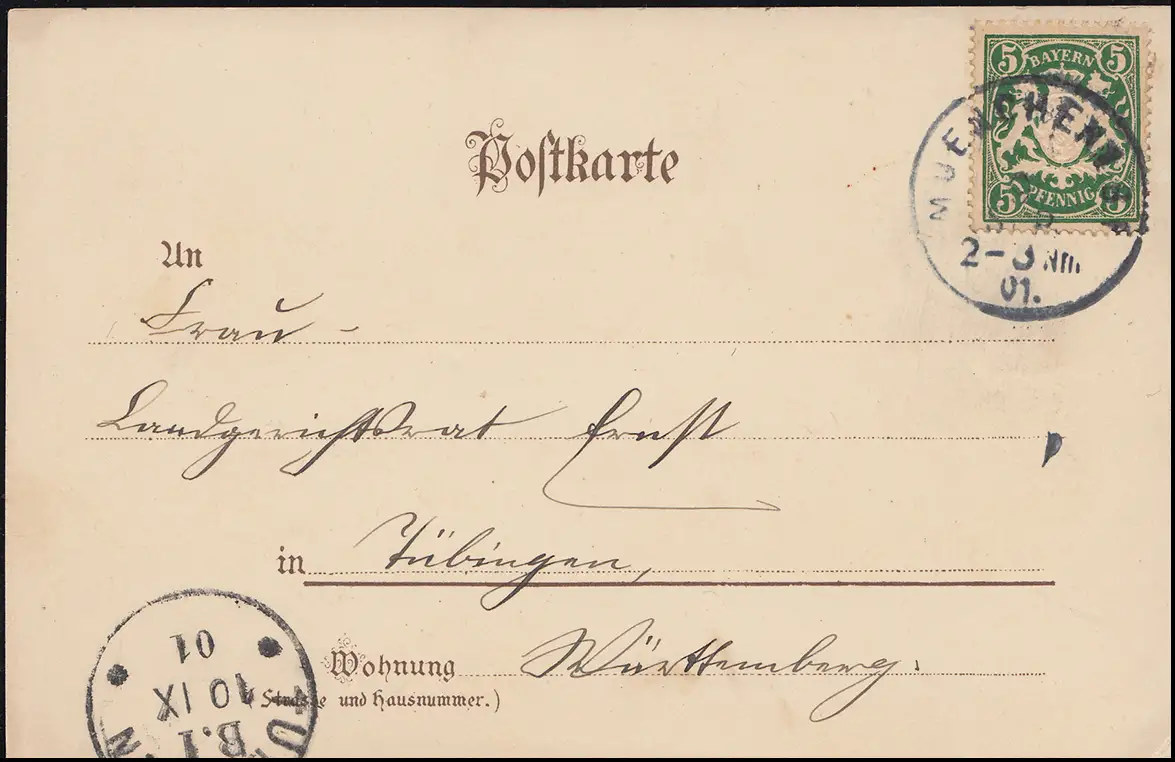 5 BAYERN 5
5 PFENNIG 5
MUENCHEN
2-3 Nm.
01.
Postkarte
An
Frau -
Landgerichtsrat Ernst
in Tübingen,
Wohnung Württemberg.
(Strasse und Hausnummer.)
01
10 IX
B.1